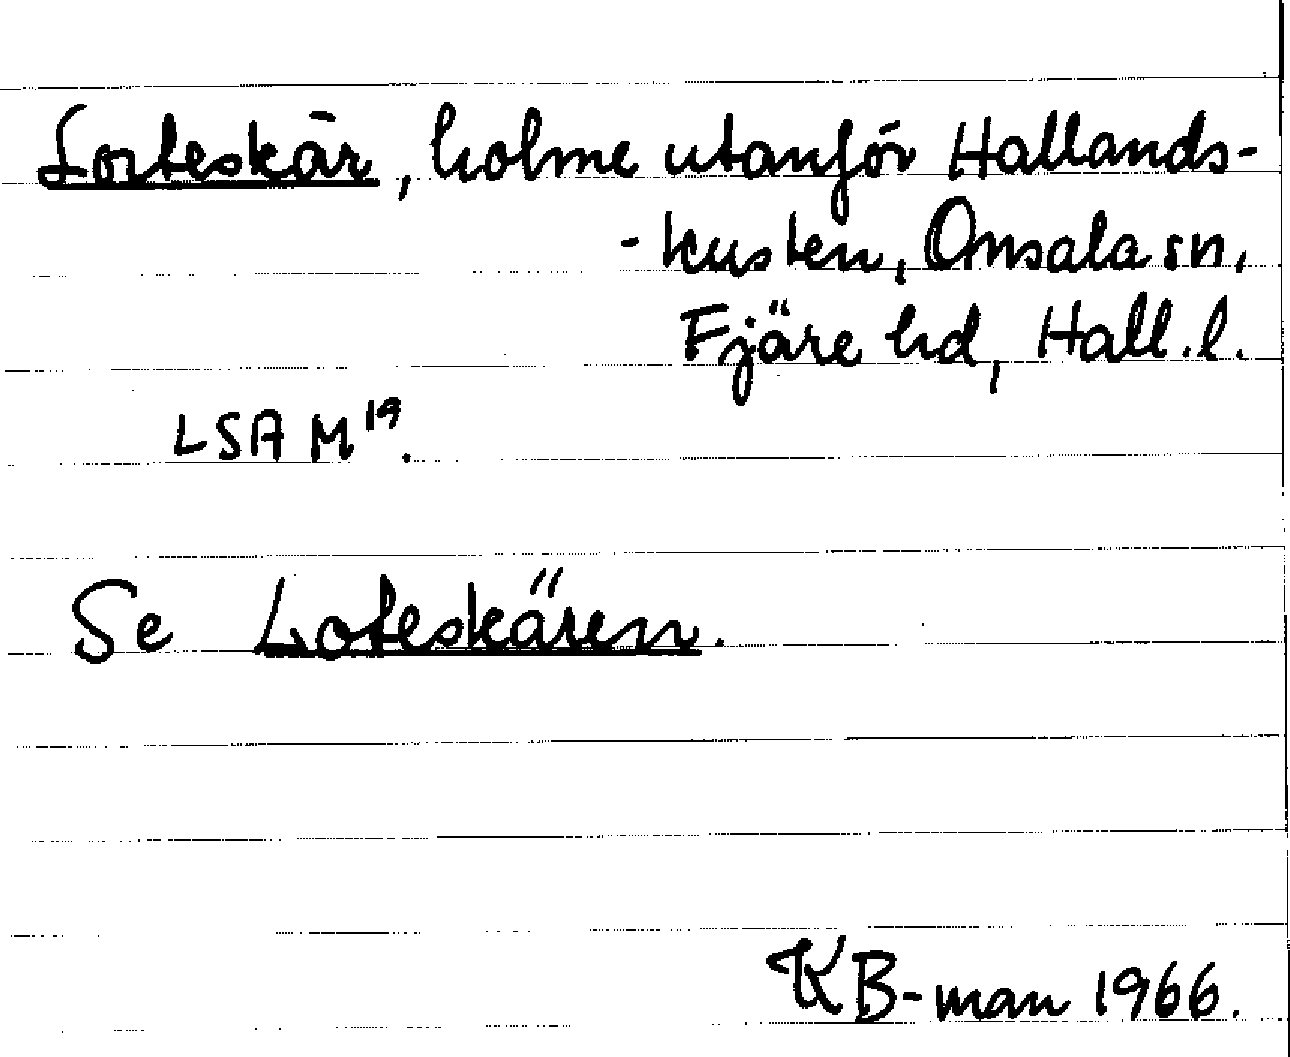 Lorteskär, holme utanför Hallands-
-kusten, Onsala sn,
Fjäre hd, Hall. l.
LSA M19.
Se Loteskären.
KB-man 1966.